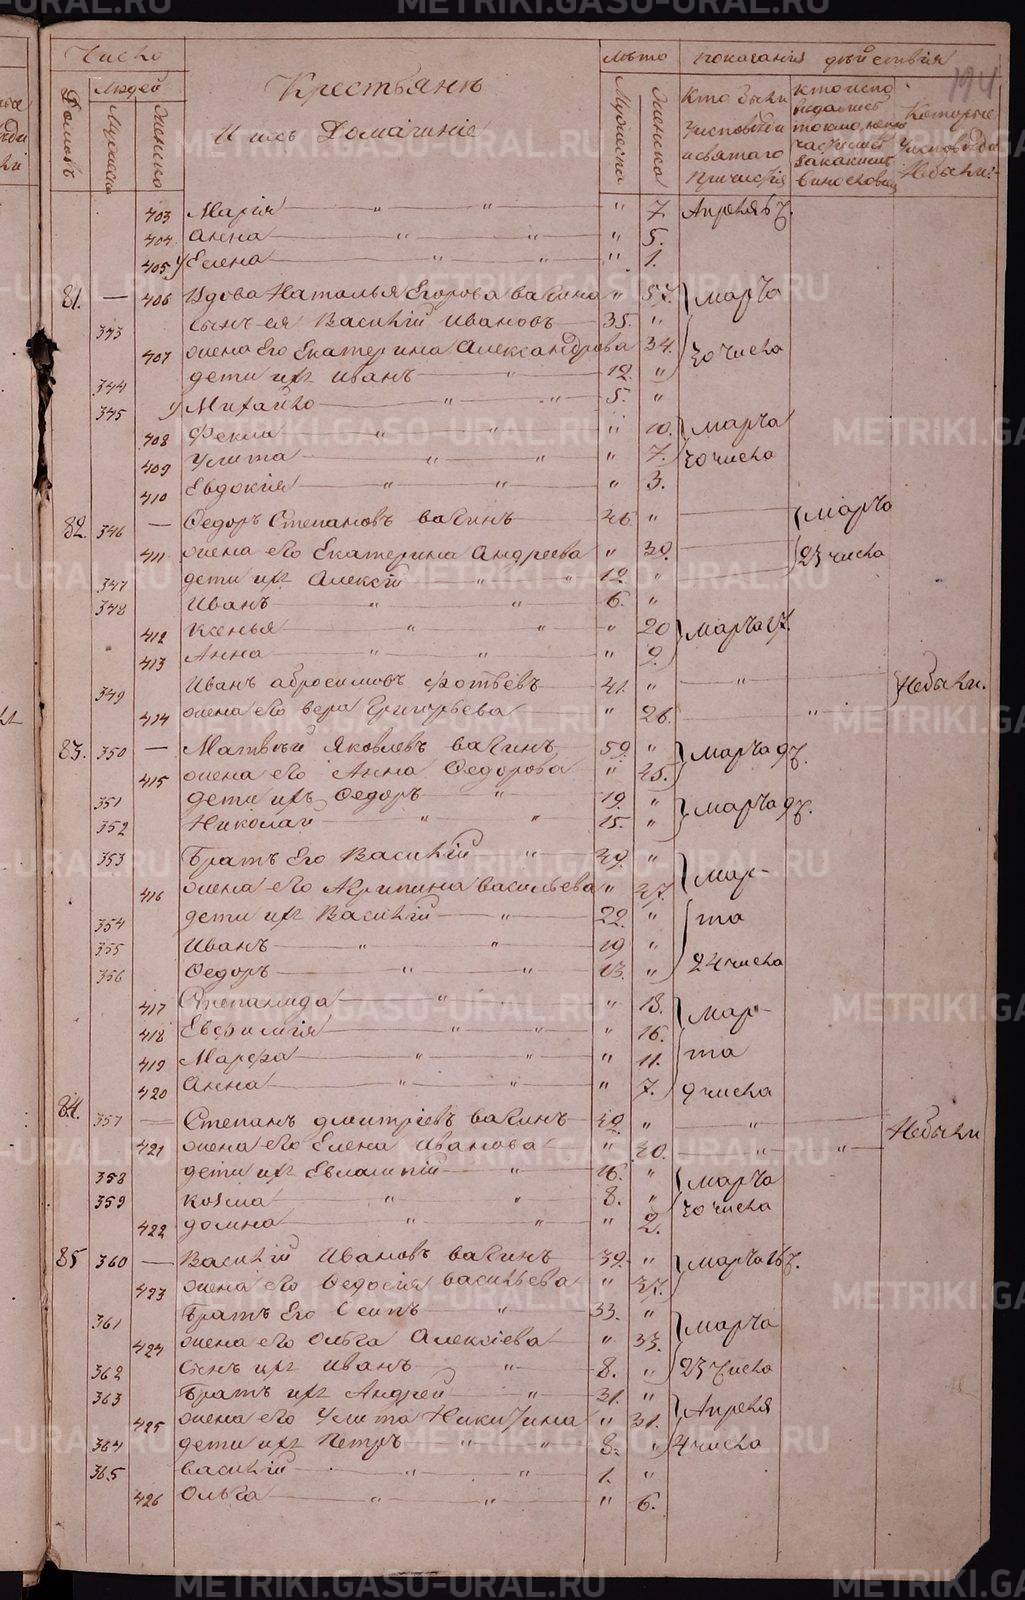 194
Число
Крестьянъ
И ихъ Домачиніе
Людей
Домовъ
Мужеска
Женска
Лѣто
Мужеска
Женска
показанія дѣйствія
Кто были
Уисповѣди
исвятаго
Причастія
Ктоиспо
ведались
токмо, а не
Которые
Уисповѣди
Небыли:
403 Марія " " " 7. Апреля 6 ч.
404 Анна " " " 5.
405 Елена " " " 1.
81. — 406 Вдова Наталья Егорова вагина " 57. марта
343 сынъ ея Василій Ивановъ 35. "
407 жена Его Екатерина Александрова 34. 30 числа
344 дети ихъ Иванъ " 12. "
345 Михайло " " 5. "
408 Фекла " " " 10. марта
409 Улита " " " 7. 30 числа
410 Евдокія " " " 3.
82. 346 — Ѳедоръ Степановъ вагинъ 46. " марта
411 жена его Екатерина Андреева " 39. 23 числа
347 дети ихъ Алексѣй " " 12. "
348 Иванъ " " 6. "
412 Ксенья " " " 20 марта 17.
413 Анна " " " 9.
349 Иванъ абросимовъ фотѣевъ 41. " " Небыли.
414 жена его вера Григорьева 26. "
83. 350 — Матвѣй Яковлевъ вагинъ 59. " марта 9 ч.
415 жена его Анна Ѳедорова " 45.
351 дети ихъ Ѳедоръ " 19. " марта 9 ч.
352 Николай " " 15. "
353 Братъ Его Василій " 49. " мар-
416 жена его Агрипина васильева " 47.
354 дети ихъ Василій " 22. " та
355 Иванъ " " 19 "
356 Ѳедоръ " " 13. " 24 числа
417 Степанида " " " 18. мар-
418 Евфимія " " " 16.
419 Марфа " " " 11. та
420 Анна " " " 7. 9 числа
84. 357 — Степанъ дмитріевъ вагинъ 42. " " Небыли
421 жена его Елена Иванова " 40. " "
358 дети ихъ Евлампій " 16. " марта
359 козма " " 8. " 30 числа
422 домна " " " 2.
85 360 — Василій Ивановъ вагинъ 39. " марта 16 ч.
423 жена его Ѳедосія васильева " 37.
361 Братъ Его Осипъ " 33. " марта
424 жена его Ольга Алексіева " 33.
362 сынъ ихъ Иванъ " 8. " 23 числа
363 Братъ ихъ Андрей " 31. " Апреля
425 жена его Улита Никитина " 31.
364 дети ихъ Петръ " " 8. " 4 числа
365 василій " " 1. "
426 Ольга " " " 6.
METRIKI.GASO-URAL.RU